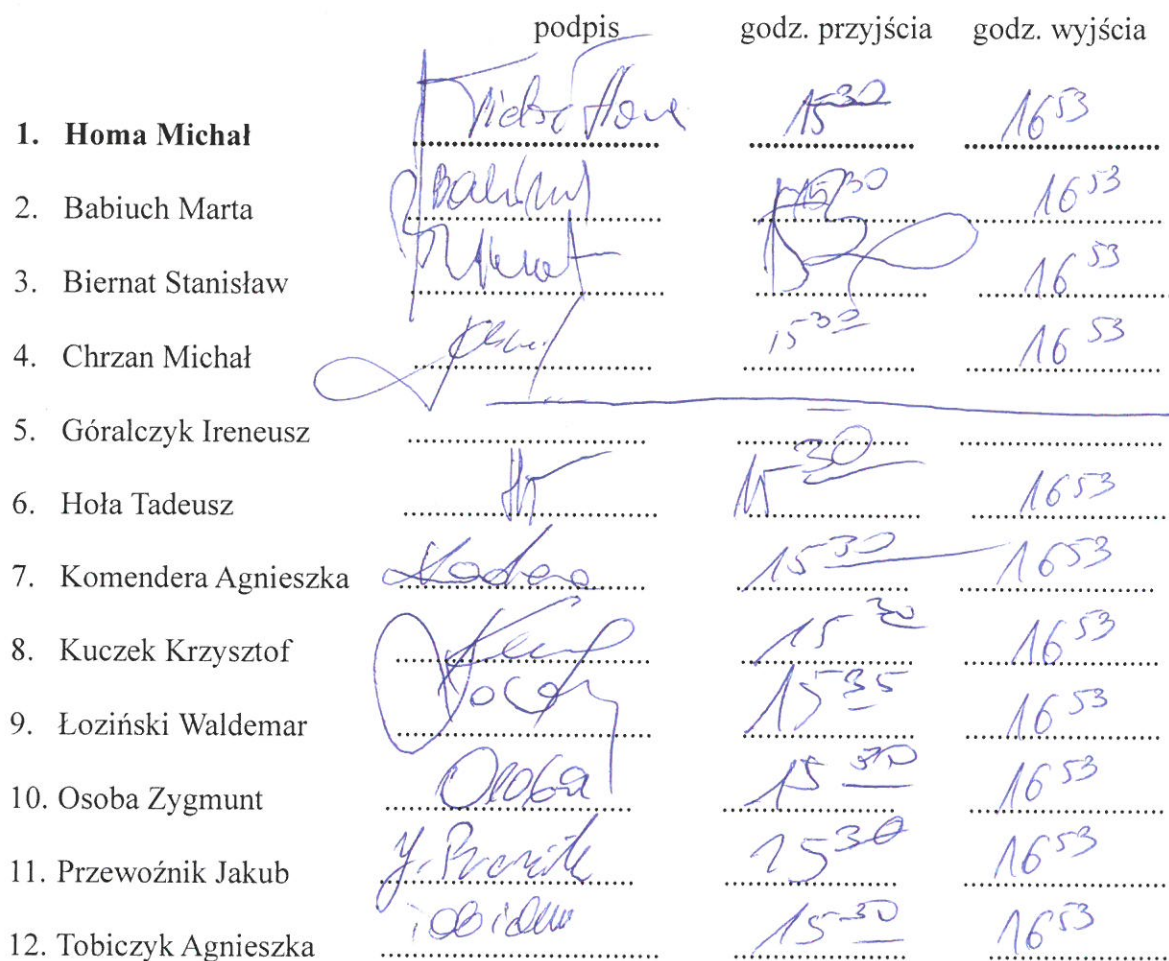 podpis godz. przyjścia godz. wyjścia
1. Homa Michał 15³⁰ 16⁵³
2. Babiuch Marta 15³⁰ 16⁵³
3. Biernat Stanisław 16⁵³
4. Chrzan Michał 15³⁰ 16⁵³
5. Góralczyk Ireneusz
6. Hoła Tadeusz 15³⁰ 16⁵³
7. Komendera Agnieszka 15³⁰ 16⁵³
8. Kuczek Krzysztof 15³⁰ 16⁵³
9. Łoziński Waldemar 15³⁵ 16⁵³
10. Osoba Zygmunt Osoba 15³⁰ 16⁵³
11. Przewoźnik Jakub 15³⁰ 16⁵³
12. Tobiczyk Agnieszka 15³⁰ 16⁵³